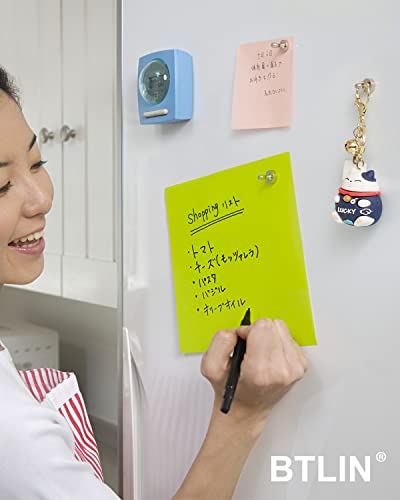 shopping リスト
・トマト
・チーズ(モッツァレラ)
・パスタ
・バジル
・オリーブオイル
LUCKY
BTLIN®